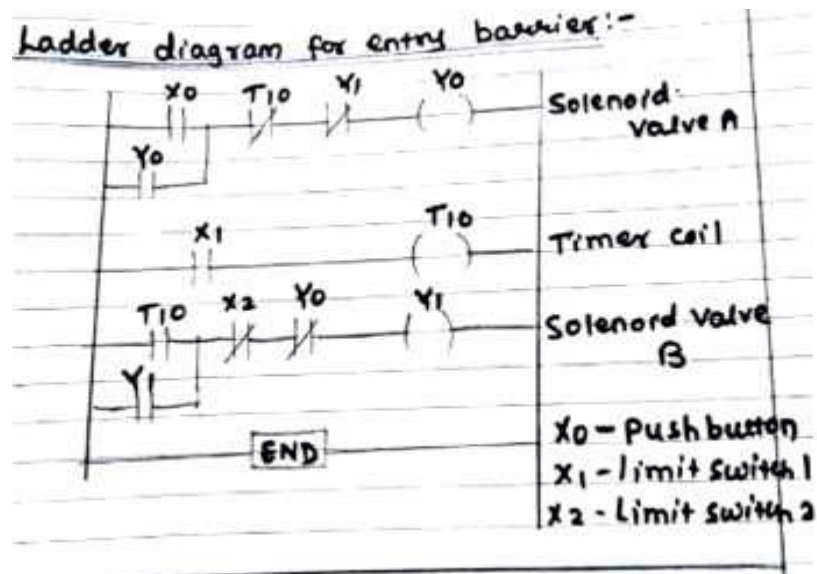 Ladder diagram for entry barrier:-
X0 T10 Y1 Y0 Solenord
valve A
Y0
X1 T10 Timer coil
T10 X2 Y0 Y1 Solenord Valve
B
Y1
END
X0 - Push button
X1 - limit switch 1
X2 - Limit switch 2